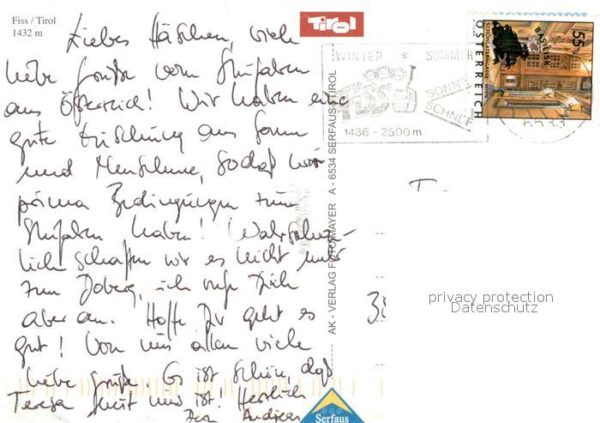 Fiss / Tirol
1432 m
Tirol
Liebes Häschen, viele
liebe Grüße vom Skifahren
aus Österreich! Wir haben eine
gute Mischung aus Sonne
und, sodaß wir
prima Bedingungen zum
Skifahren haben! Wahrschein-
lich schaffen wir es nicht mehr
zum, ich rufe Dich
aber an. Hoffe Dir geht es
gut! Von uns allen viele
liebe Grüße. Es ist schön, daß
Teresa mit uns ist! Herzlich
Dein Andreas
WINTER * SOMMER
SONNE
SCHNEE
1436-2500m
6533
55
ÖSTERREICH
AK - VERLAG FOTOMAYER A - 6534 SERFAUS-TIROL
T.
38
privacy protection
Datenschutz
Serfaus